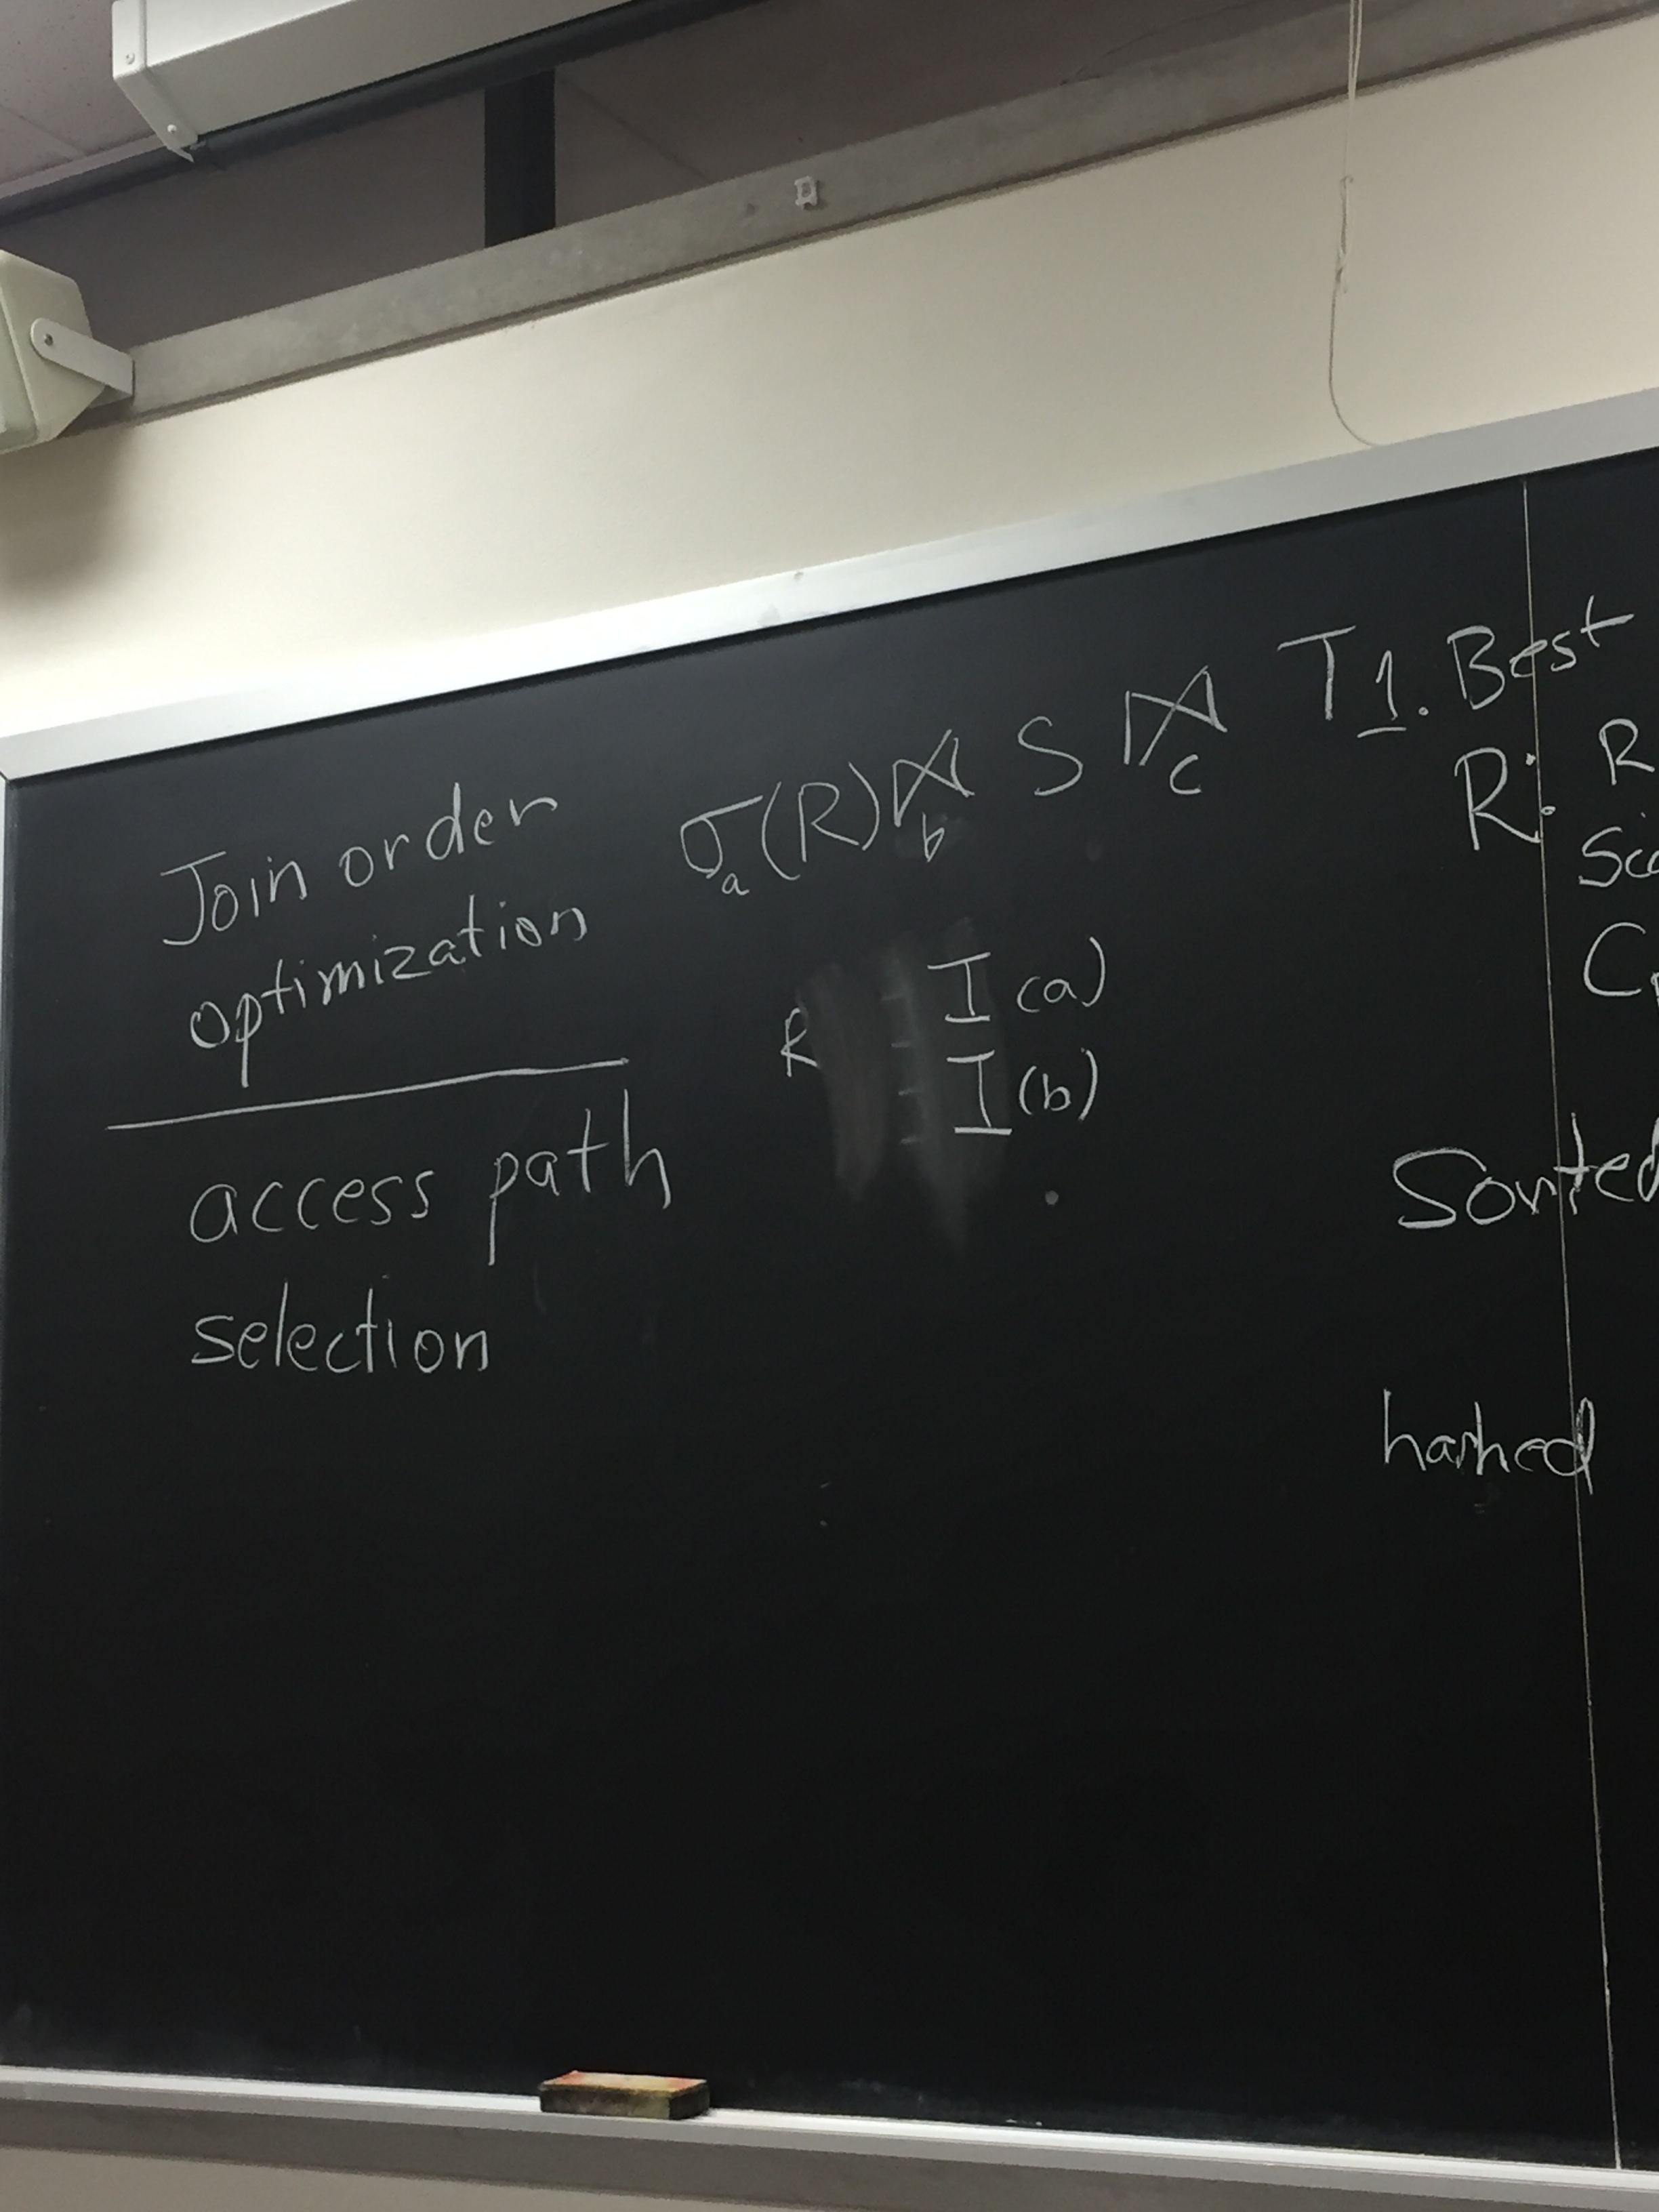 Join order
optimization
access path
selection
σa(R) ⋈b S ⋈c T
R
I(a)
I(b)
1. Best
R: R
Sorted
hashed